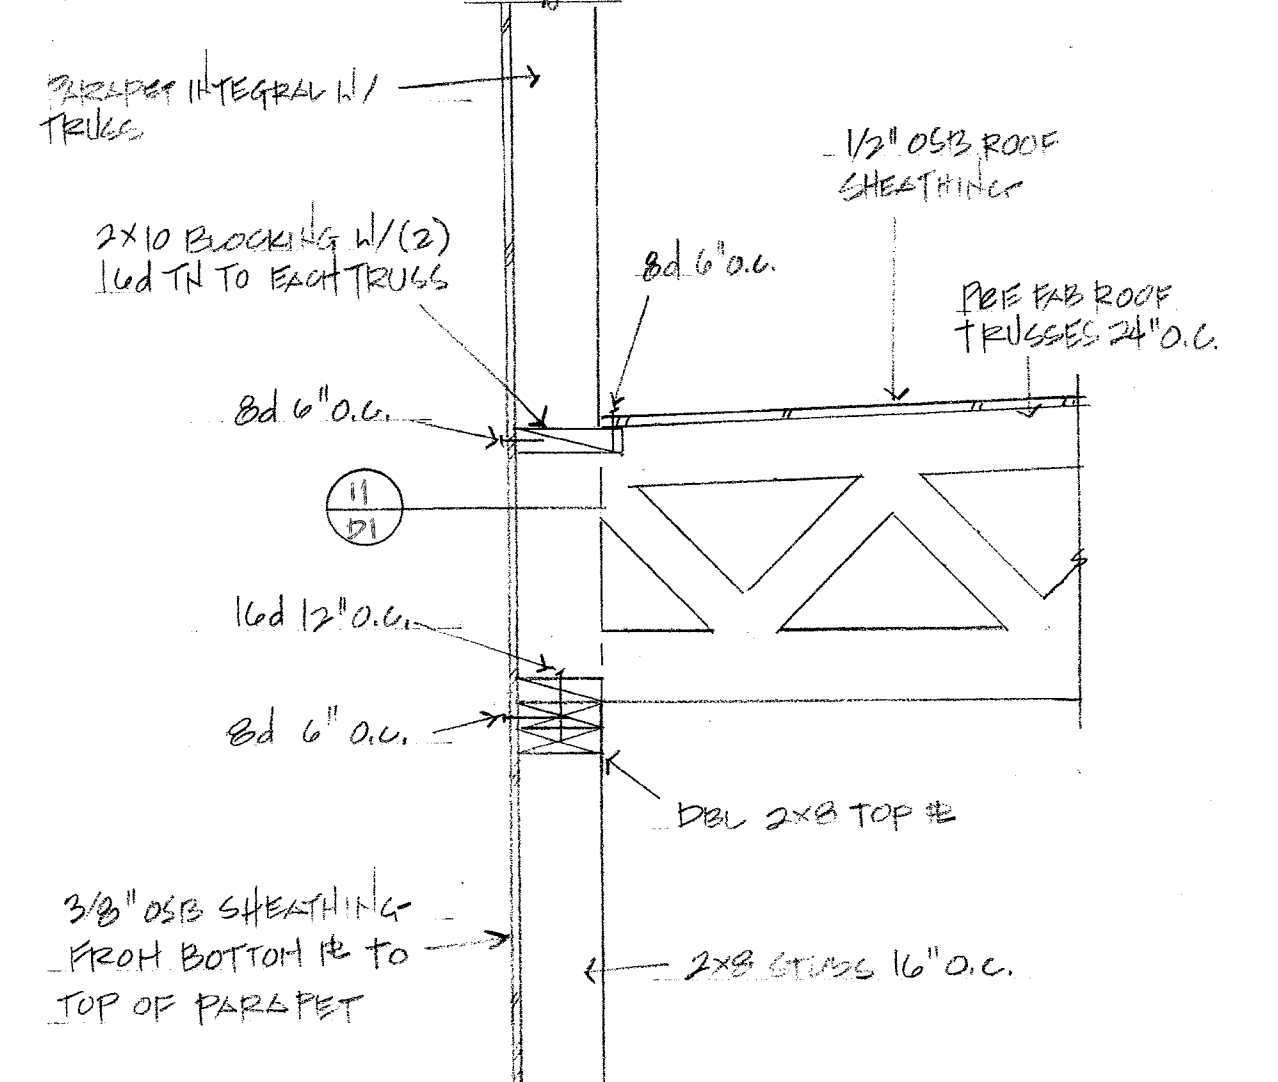 PARAPET INTEGRAL W/
TRUSS
1/2" OSB ROOF
SHEATHING
2X10 BLOCKING W/(2)
16d TN TO EACH TRUSS
8d 6" O.C.
PRE FAB ROOF
TRUSSES 24" O.C.
8d 6" O.C.
11
D1
16d 12" O.C.
8d 6" O.C.
DBL 2X8 TOP PL
3/8" OSB SHEATHING
FROM BOTTOM PL TO
TOP OF PARAPET
2X8 STUDS 16" O.C.